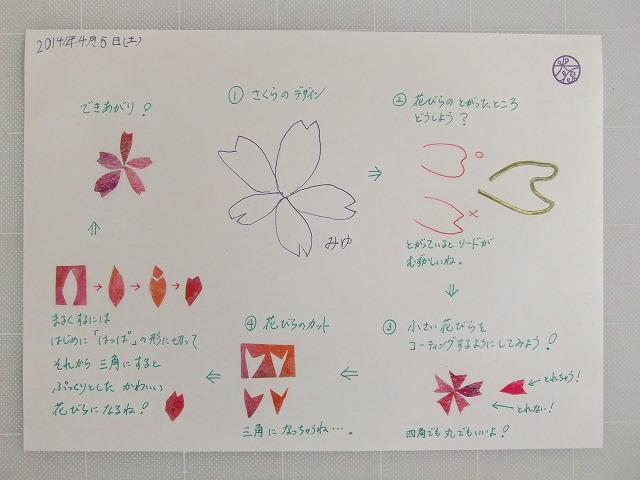 2014年4月5日(土)
① さくらの デザイン
みゆ
② 花びらの とがったところ
どうしよう?
○
×
とがっていると リードが
むずかしいね。
③ 小さい 花びらを
コーティングするようにしてみよう!
とれちゃう!
とれない!
四角でも 丸でもいいよ!
④ 花びらのカット
三角に なっちゃうね…。
まるくするには
はじめに「はっぱ」の形に切って
それから 三角に すると
ぷっくりとした かわいい
花びらに なるね!
できあがり!